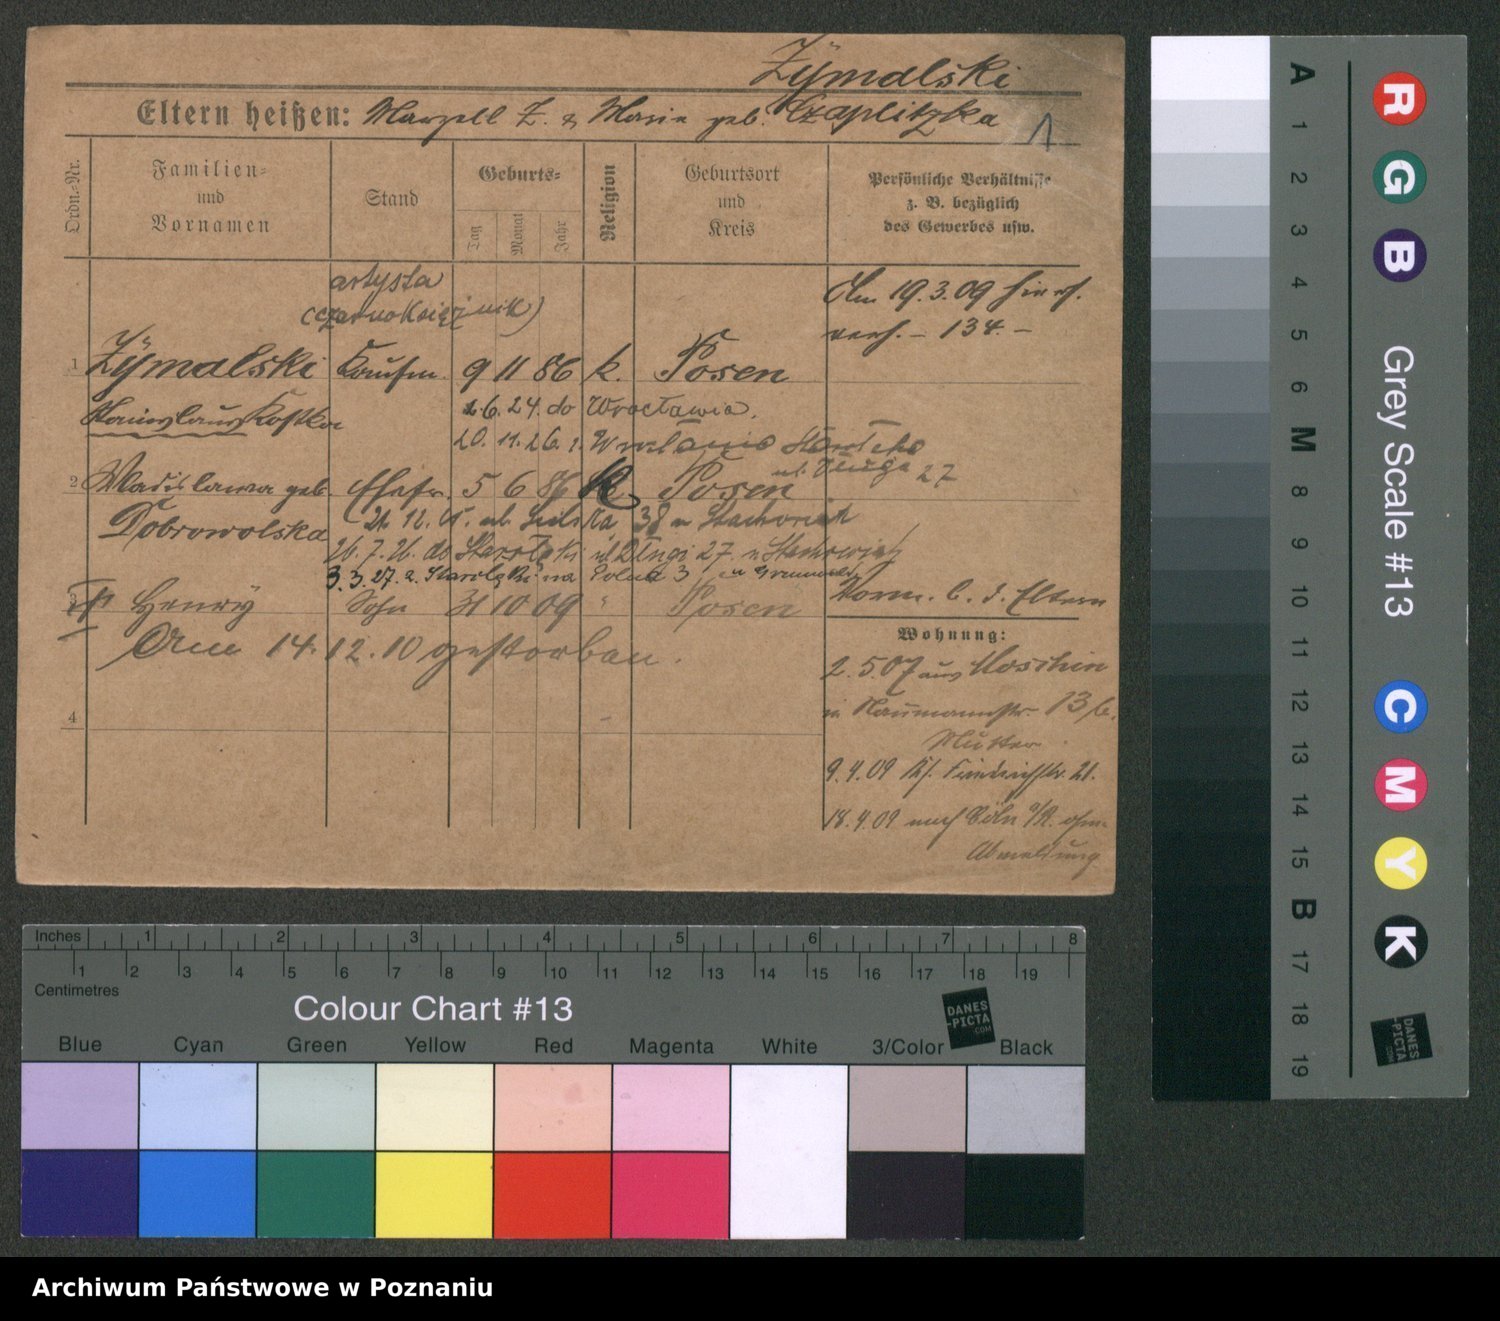 Zÿmalski
Eltern heißen: Marzell Z. & Maria geb. Czaplitzka
1
Ordn.-Nr.
Familien- und Vornamen
Stand
Geburts-
Tag Monat Jahr
Religion
Geburtsort und Kreis
Persönliche Verhältnisse z. B. bezüglich des Gewerbes usw.
artysta
(czarnoksiężnik)
Am 19.3.09
verh. – 134. –
1 Zÿmalski Kaufm. 9 11 86 k. Posen
Stanislaus Kostka
26.24. do Wrocławia.
20.11.26. z Wrocławia
ul. Długa 27
2 Wladislawa geb. Ehefr. 5 6 86 k. Posen
Dobrowolska
21.12. ul. 38
26.7.26. do Starołęki ul Długa 27.
3.3.27. z Starołęki na Polna 3
3 Henrÿ Sohn 31 10 09 " Posen
Am 14.12.10 gestorben.
4
Vorm. b. d. Eltern
Wohnung:
2.5.07 aus Moschin
in Naumannstr. 13
Mutter
9.4.09 Kl. Friedrichstr. 21.
18.4.09 nach Cöln a/R. ohne
Abmeldung
A 1 2 3 4 5 6 M 8 9 10 11 12 13 14 15 B 17 18 19
Grey Scale #13
R G B
C M Y K
DANES
-PICTA
.COM
Inches 1 2 3 4 5 6 7 8
1 2 3 4 5 6 7 8 9 10 11 12 13 14 15 16 17 18 19
Centimetres
Colour Chart #13
DANES
-PICTA
.COM
Blue Cyan Green Yellow Red Magenta White 3/Color Black
Archiwum Państwowe w Poznaniu